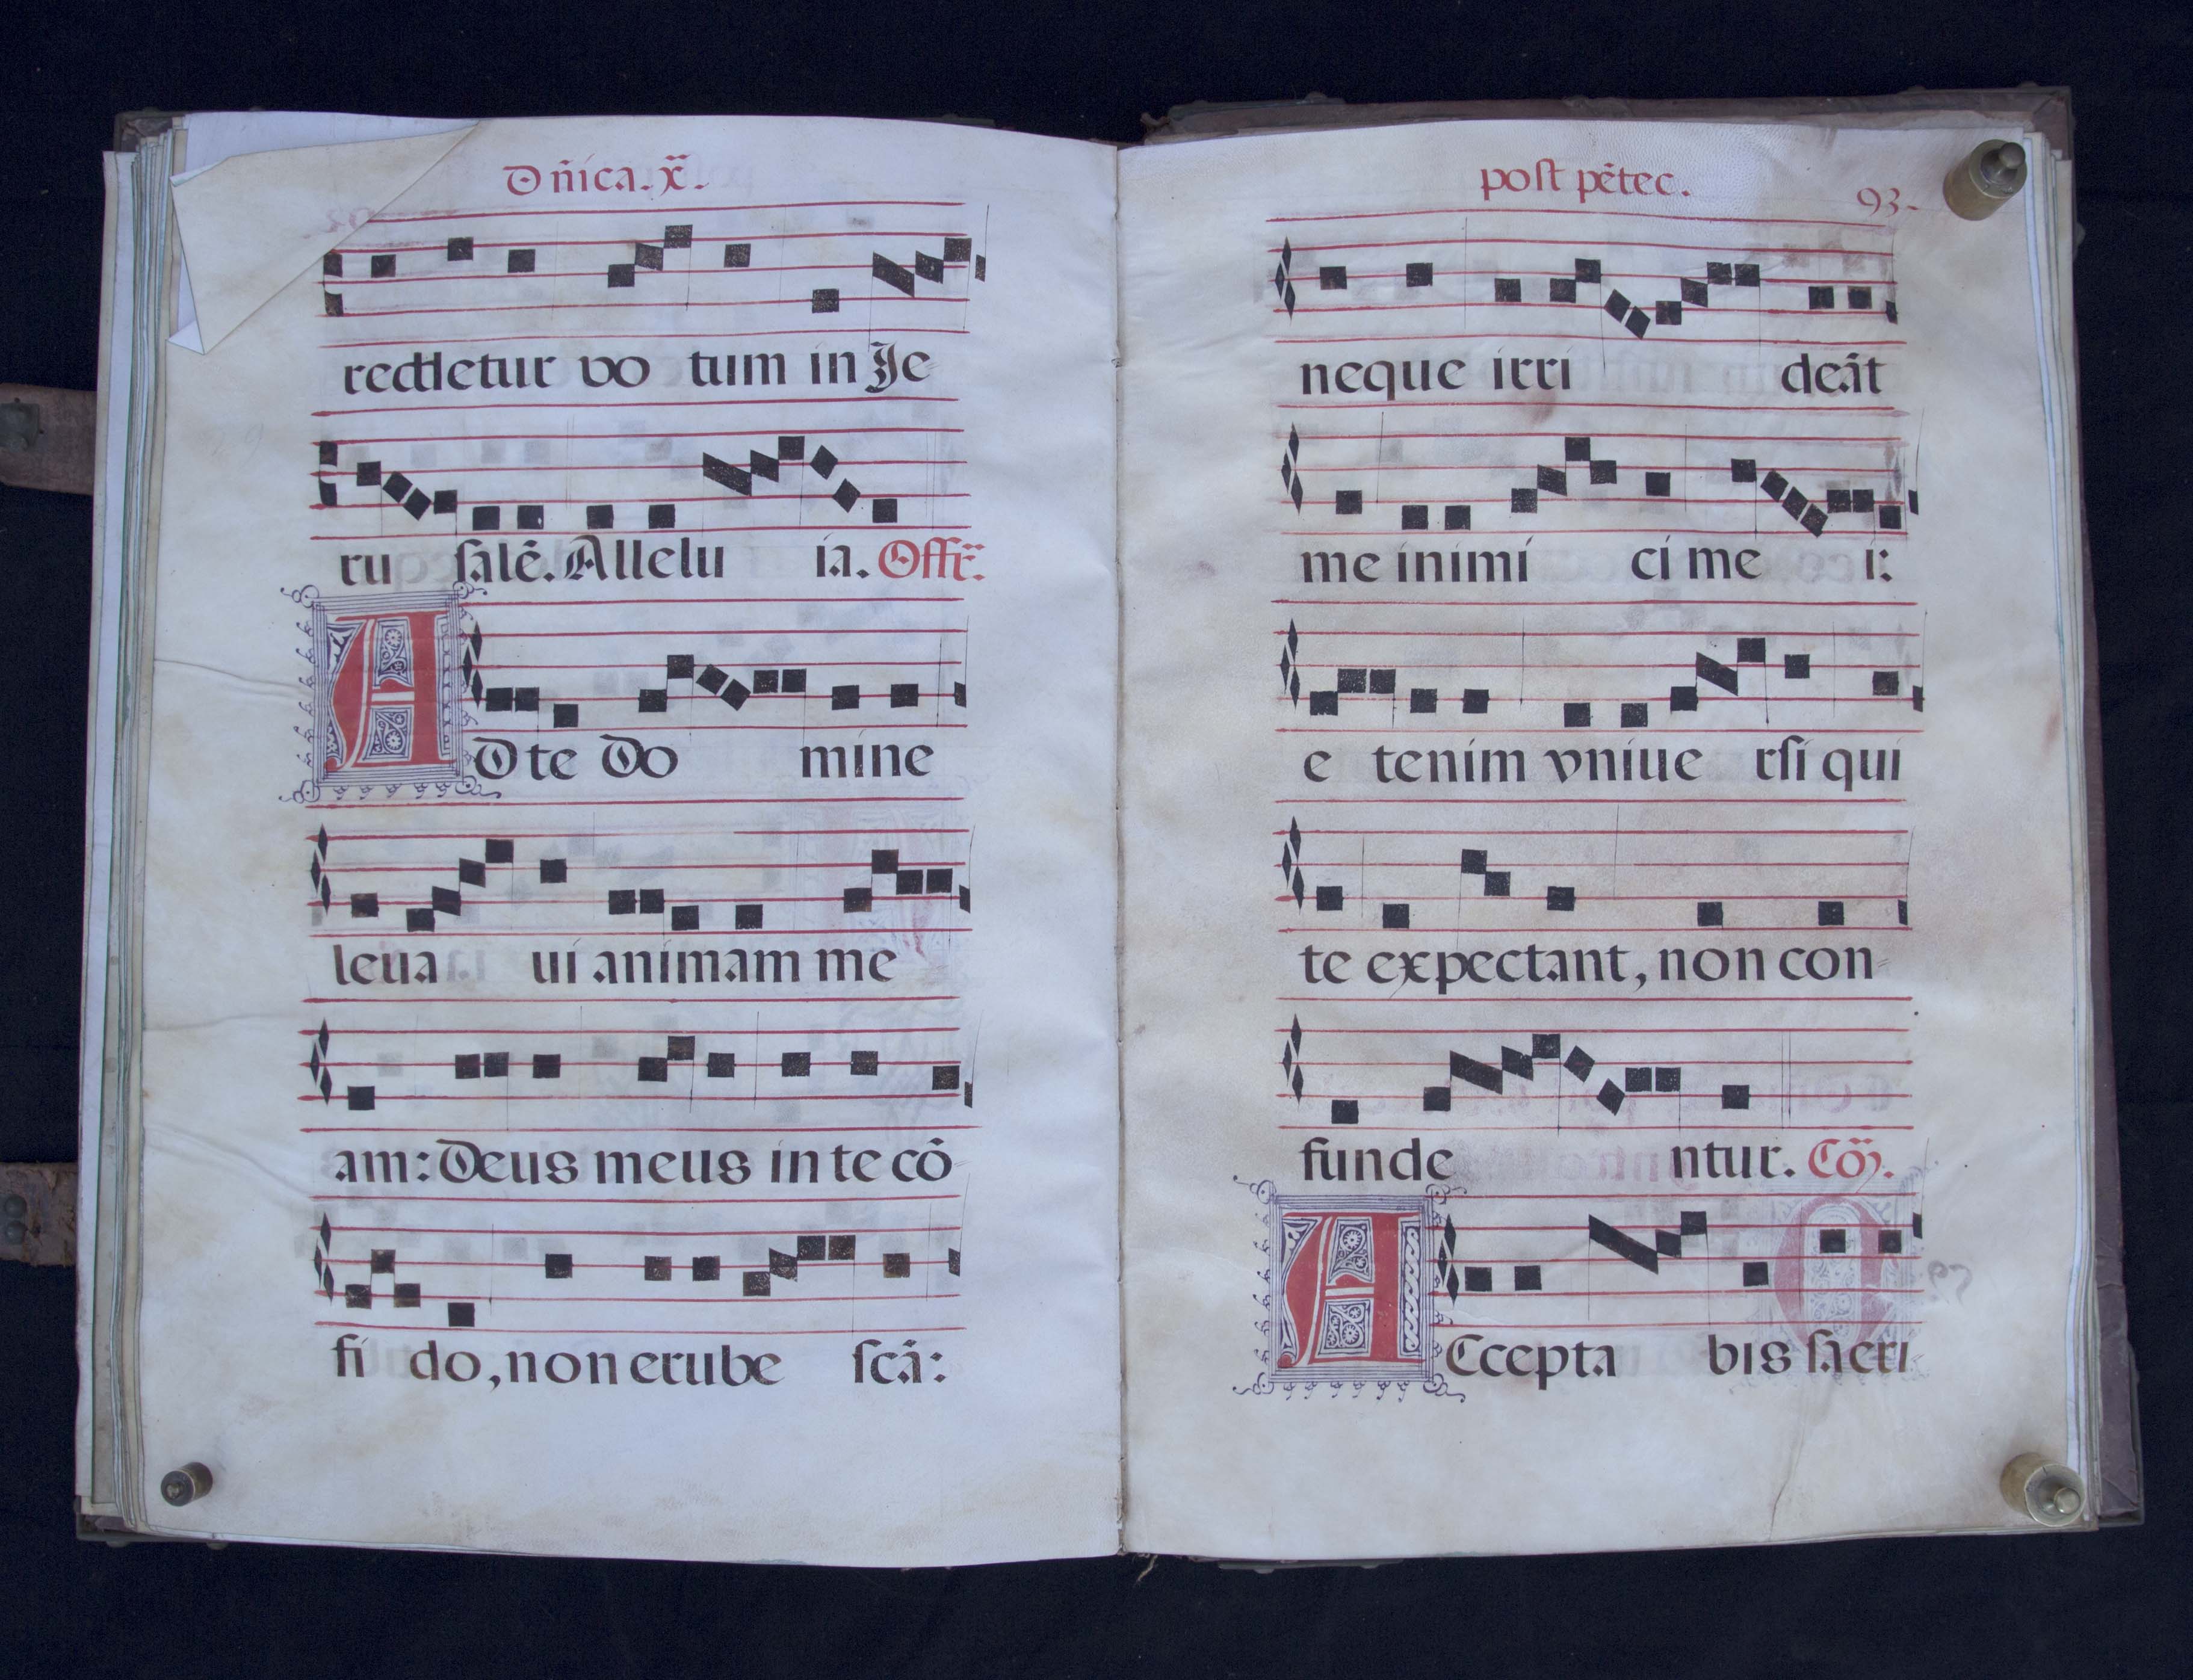 Dn̄ica. x̄.
reddetur vo tum in Je
ru salē. Allelu ia. Offr̄.
AD te Do mine
leua ui animam me
am: Deus meus in te cō
fi do, non erube scā:
post pētec.
93.
neque irri deāt
me inimi ci me i:
e tenim vniue rsi qui
te expectant, non con
funde ntur. Cō.
ACcepta bis sacri